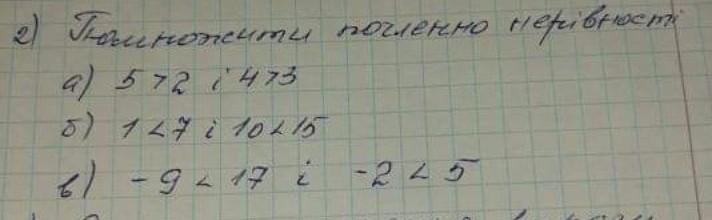 2) Помножити почленно нерівності
а) 5 > 2 і 4 > 3
б) 1 < 7 і 10 < 15
в) - 9 < 17 і -2 < 5